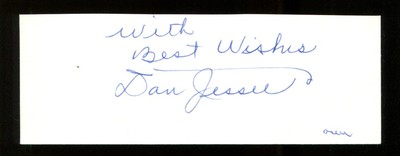 With
Best Wishes
Dan Jessee
over